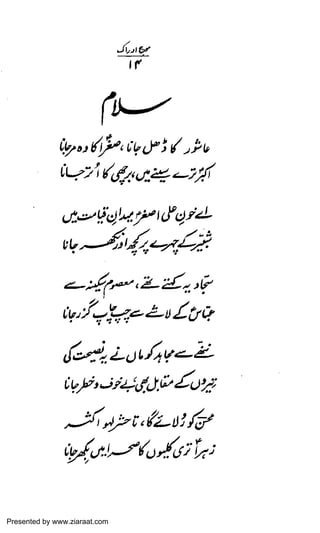 موج ادراک
۱۴
سلام
عاشور کا ڈھل جانا، صغرٰا کا وہ مرجانا
اکبرؑ ترے سینے میں، برچھی کا اُتر جانا
اے خونِ علی اصغرؑ میدانِ قیامت میں
شبیرؑ کے چہرے پر کچھ اور نکھر جانا
سجادؑ یہ کہتے تھے، معصوم سکینہؑ سے
عباسؑ کے لاشے سے چپ چاپ گزر جانا
ننھے سے مجاہد کو ماں نے یہ نصیحت کی
تیروں کے مقابل بھی بے خوف و خطر جانا
محسنؔ کو رُلائے گا، تا حشر لہو اکثر
زہراؑ تری کلیوں کا صحرا میں بکھر جانا
Presented by www.ziaraat.com